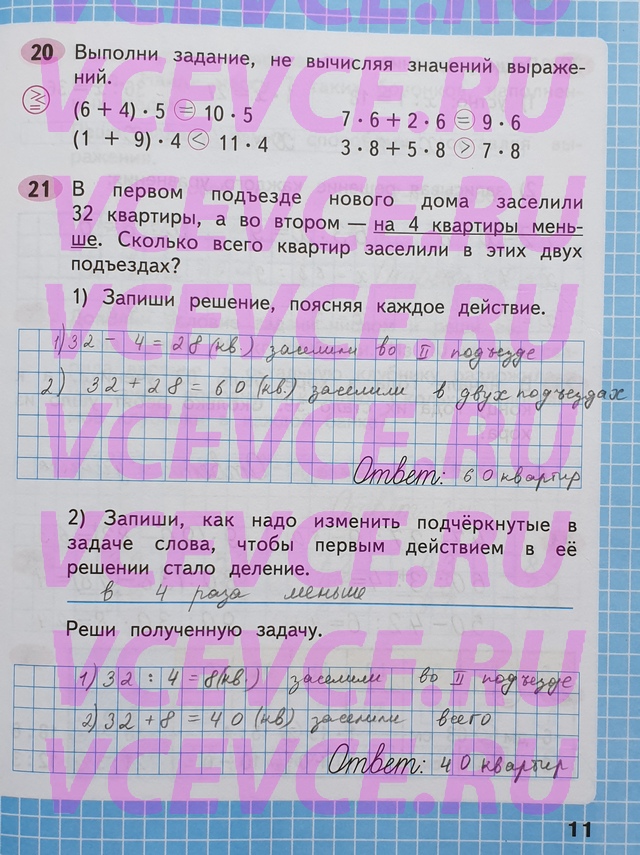 VCEVCE.RU
20 Выполни задание, не вычисляя значений выраже-
ний.
(6 + 4) · 5 = 10 · 5 7 · 6 + 2 · 6 = 9 · 6
(1 + 9) · 4 < 11 · 4 3 · 8 + 5 · 8 > 7 · 8
VCEVCE.RU
21 В первом подъезде нового дома заселили
32 квартиры, а во втором — на 4 квартиры мень-
ше. Сколько всего квартир заселили в этих двух
подъездах?
VCEVCE.RU
1) Запиши решение, поясняя каждое действие.
1) 32 - 4 = 28 (кв.) заселили во II подъезде
2) 32 + 28 = 60 (кв) заселили в двух подъездах
VCEVCE.RU
Ответ: 60 квартир
2) Запиши, как надо изменить подчёркнутые в
задаче слова, чтобы первым действием в её
решении стало деление.
VCEVCE.RU
в 4 раза меньше
Реши полученную задачу.
VCEVCE.RU
1) 32 : 4 = 8 (кв.) заселили во II подъезде
2) 32 + 8 = 40 (кв) заселили всего
VCEVCE.RU
Ответ: 40 квартир
11